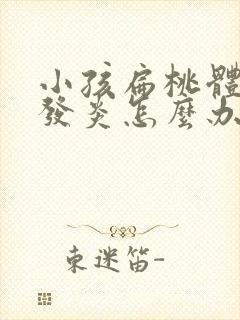 小孩扁桃體
發炎怎麼办
東迷笛-